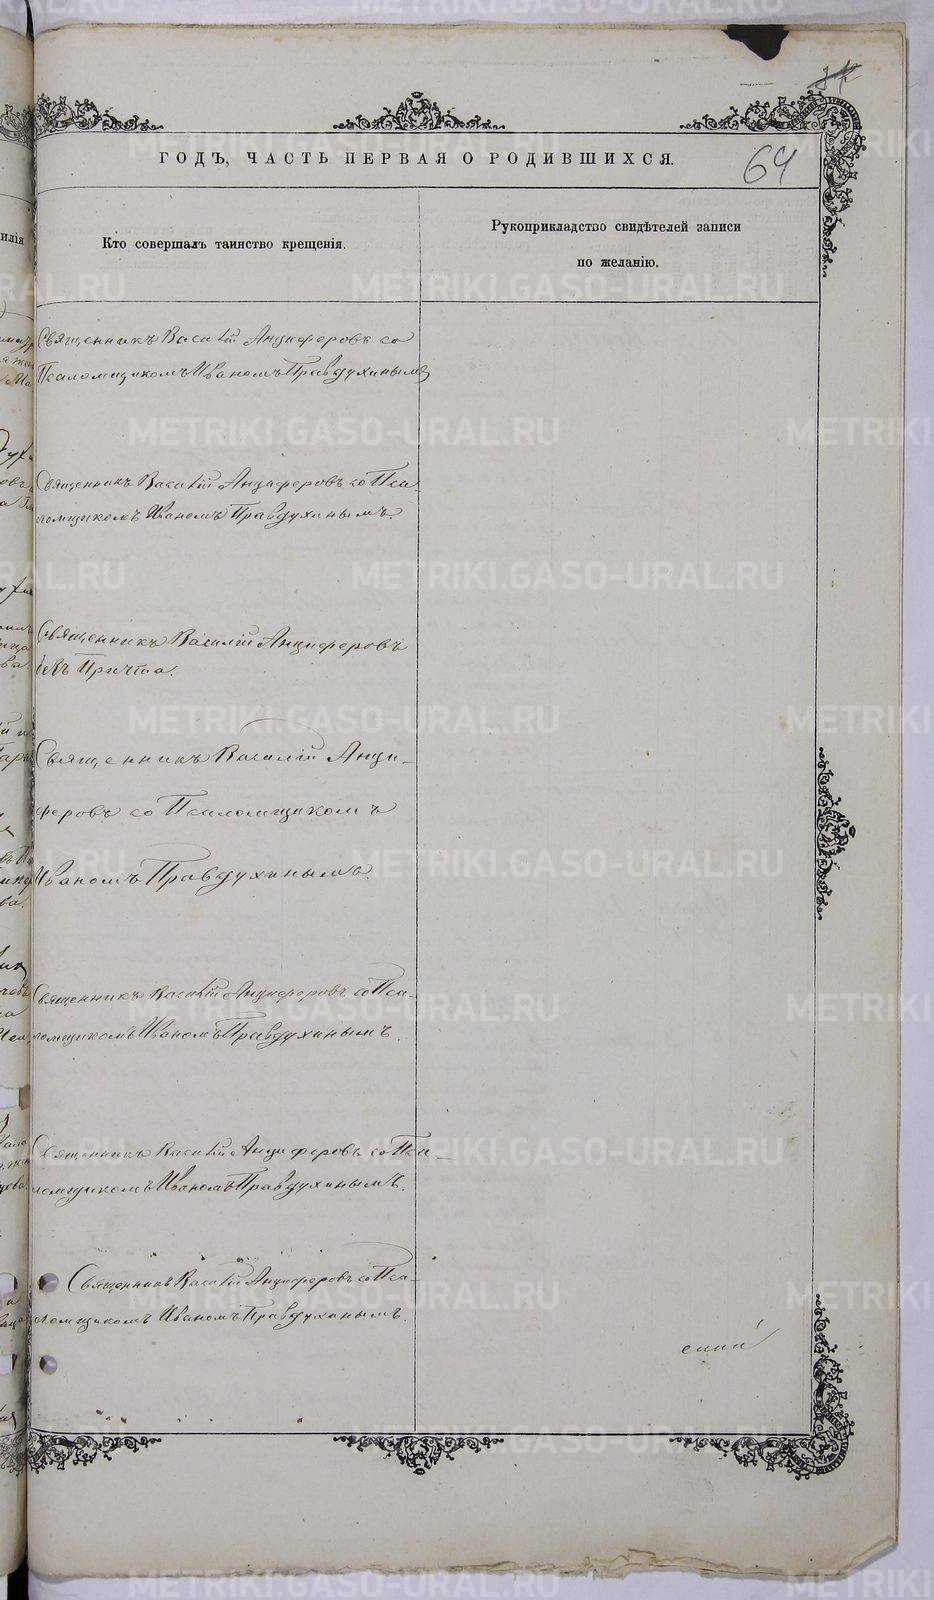 64
ГОДЪ, ЧАСТЬ ПЕРВАЯ О РОДИВШИХСЯ.
Кто совершалъ таинство крещенія.
Рукоприкладство свидѣтелей записи
по желанію.
Священникъ Василій Анциферовъ со
Псаломщикомъ Иваномъ Правдухинымъ
Священникъ Василій Анциферовъ со Пса-
ломщикомъ Иваномъ Правдухинымъ.
Священникъ Василій Анциферовъ
безъ Причта.
Священникъ Василій Анци-
феровъ со Псаломщикомъ
Иваномъ Правдухинымъ.
Священникъ Василій Анциферовъ со Пса-
ломщикомъ Иваномъ Правдухинымъ.
Священникъ Василій Анциферовъ со Пса-
ломщикомъ Иваномъ Правдухинымъ.
Священникъ Василій Анциферовъ со Пса-
ломщикомъ Иваномъ Правдухинымъ.
METRIKI.GASO-URAL.RU